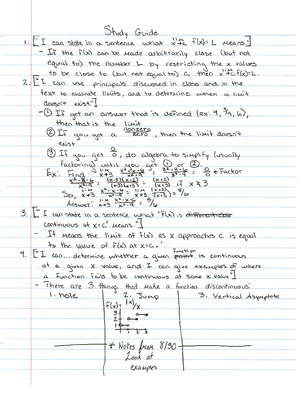 Study Guide
1. ["I can state in a sentence what lim x→c f(x)=L means"]
- If the f(x) can be made arbitrarily close (but not
equal to) the number L by restricting the x values
to be close to (but not equal to) c, then lim x→c f(x)=L.
2. ["I can use principals discussed in class and in the
text to evaluate limits, and to determine when a limit
doesn't exist"]
① If get an answer that is defined (ex: 9, 3/4, 6),
then that is the limit
② If you get a nonzero/0, then the limit doesn't
exist
③ If you get 0/0, do algebra to simplify (usually
factoring) until you get ① or ②.
Ex: Find lim x→3
= 0/0 * Factor
if x ≠ 3
So
Answer:
3. ["I can state in a sentence what 'f(x) is
continuous at x=c' means."]
- It means the limit of f(x) as x approaches c is equal
to the value of f(x) at x=c.
4. ["I can... determine whether a given function is continuous
at a given x value, and I can give examples of where
a function fails to be continuous at some x value"]
- There are 3 things that make a function discontinuous
1. hole 2. Jump 3. Vertical Asymptote
* Notes from 8/30
Look at
examples